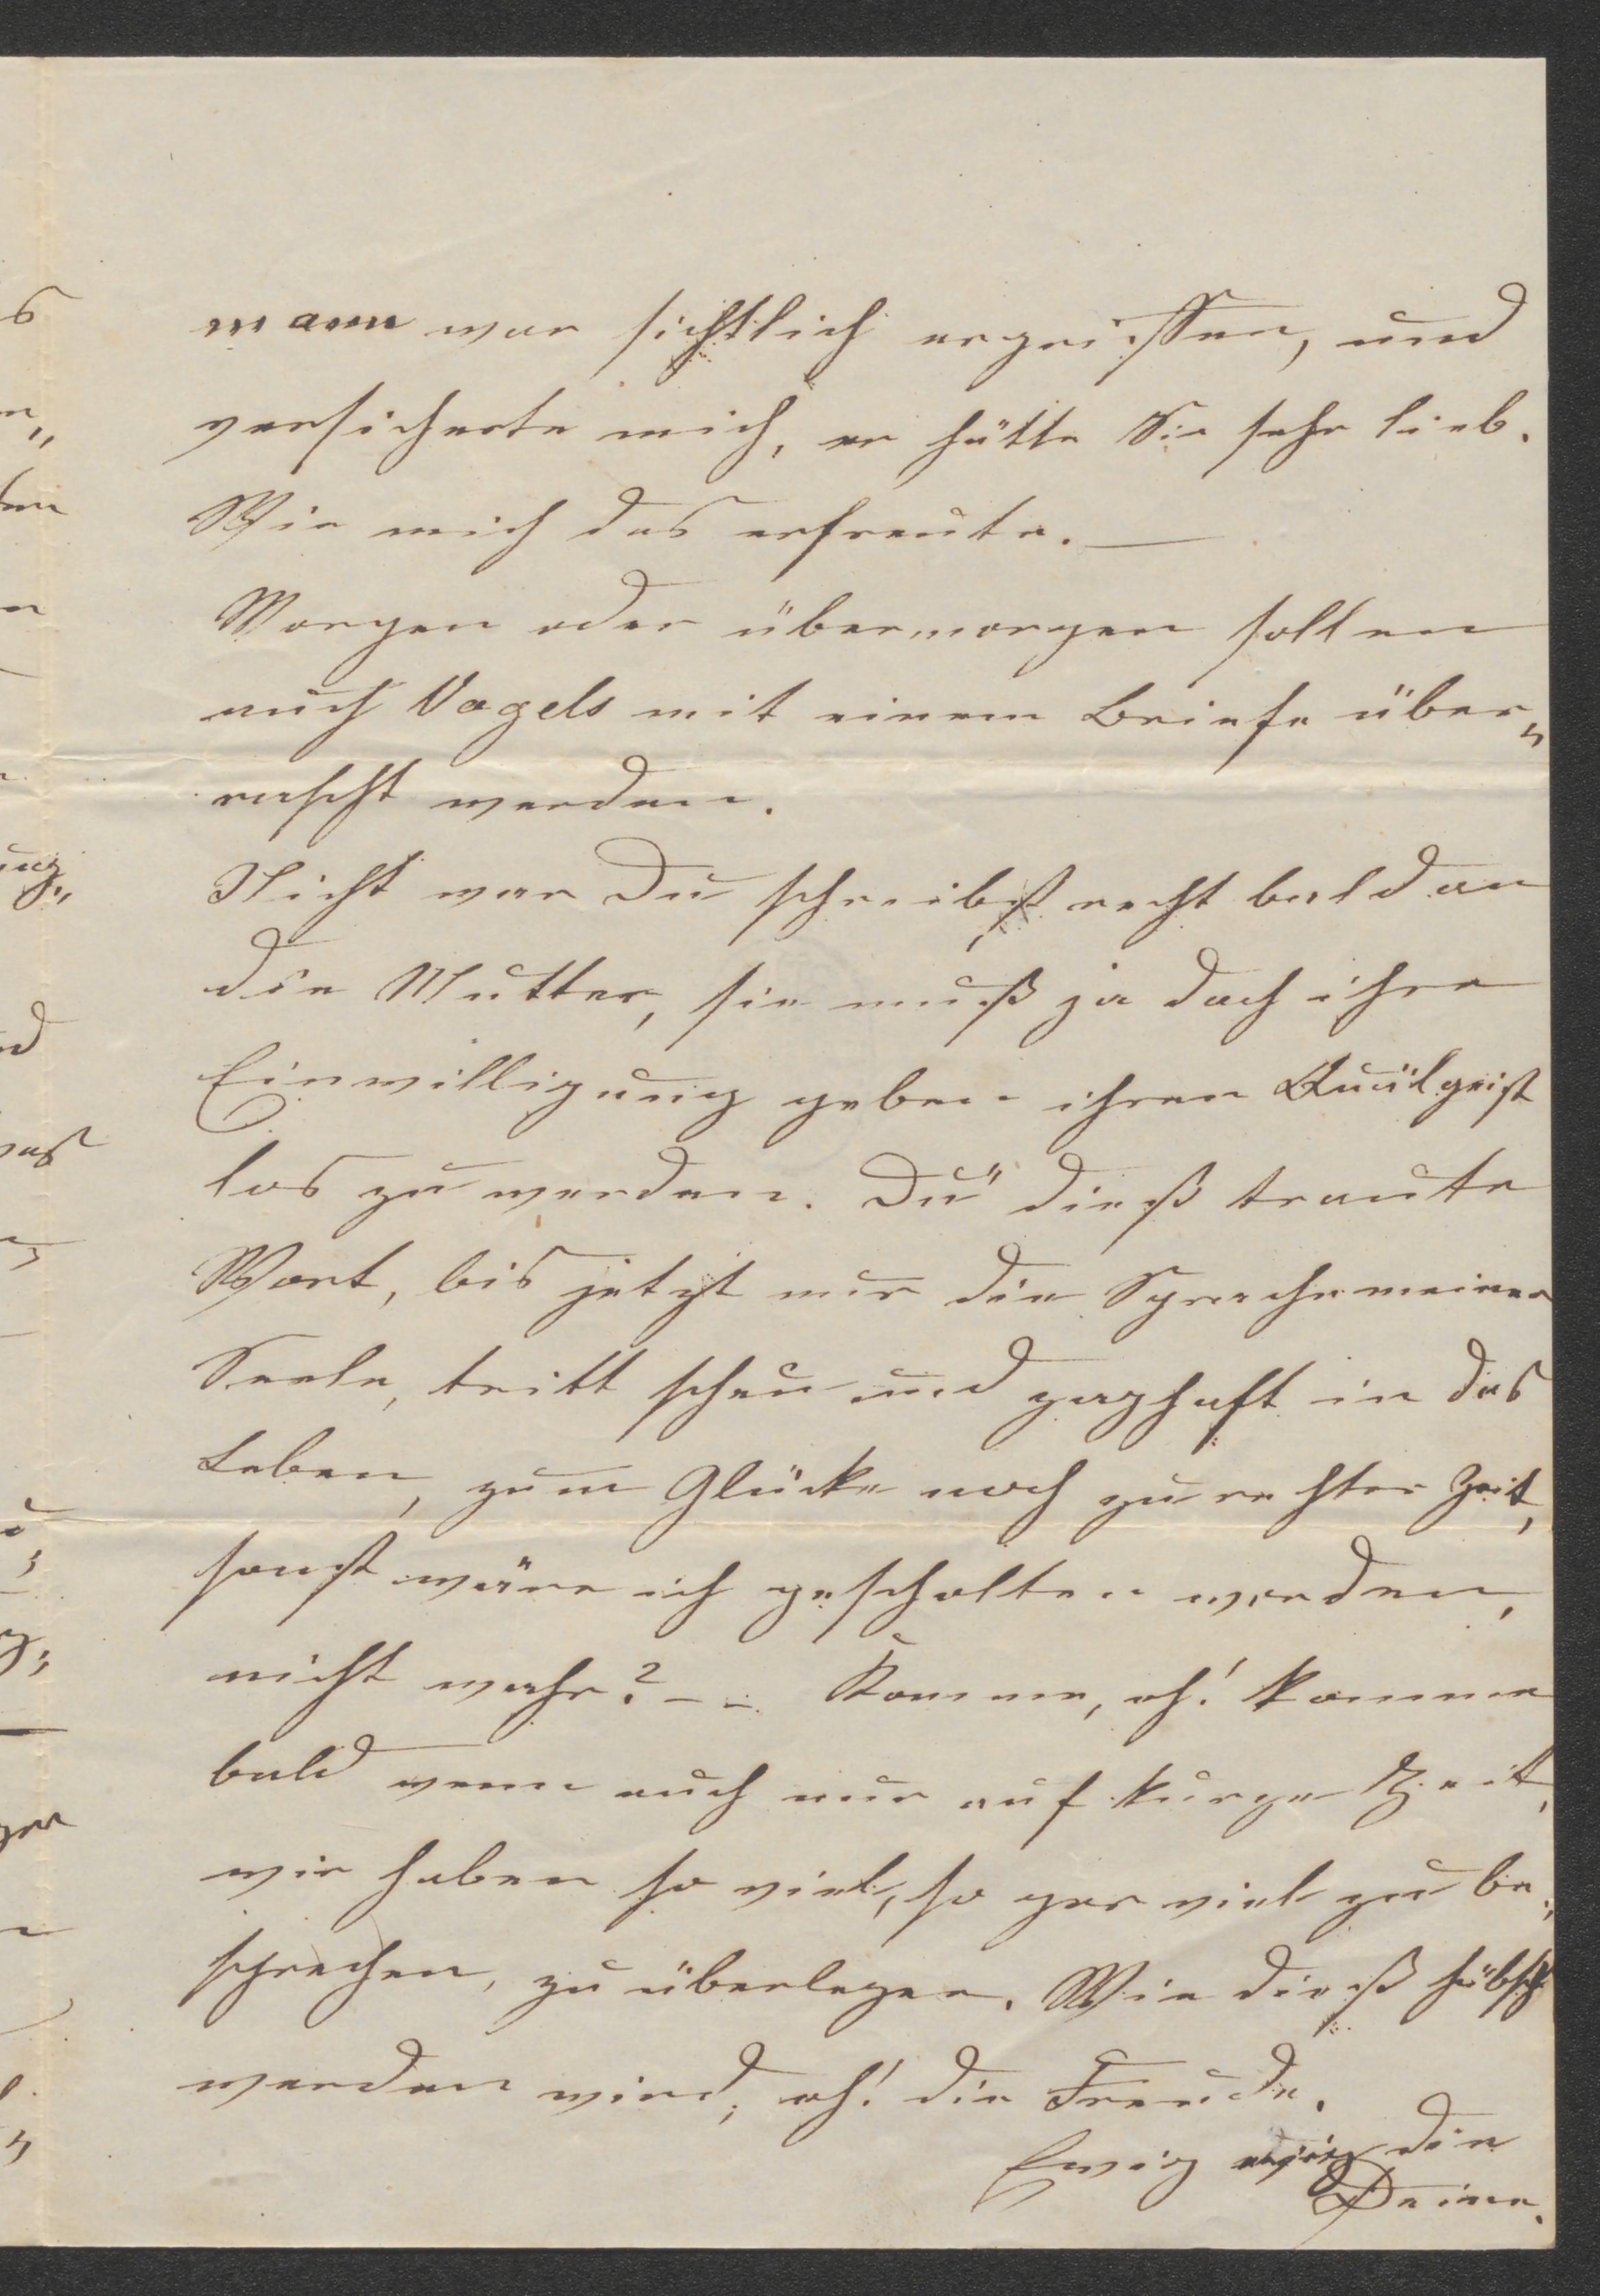 mann war sichtlich ergriffen, und
versicherte mich, er hätte Sie sehr lieb.
Wie mich das erfreute. —
Morgen oder übermorgen sollen
auch Vogels mit einem Briefe über„
rascht werden.
Nicht war Du schreibst recht bald an
die Mutter, sie muß ja doch ihre
Einwilligung geben ihren Quälgeist
los zu werden. Du" dieß traute
Wort, bis jetzt nur die Sprache meiner
Seele, tritt scheu und zaghaft in das
Leben, zum Glücke noch zu rechter Zeit,
sonst wäre ich gescholten worden,
nicht wahr? – – Komme, oh! komme
bald wenn auch nur auf kurze Zeit,
wir haben so viel, so gar viel zu be„
sprechen, zu überlegen. Wie dieß hübsch
werden wird, oh! die Freude.
Ewig ewig die
Deine.